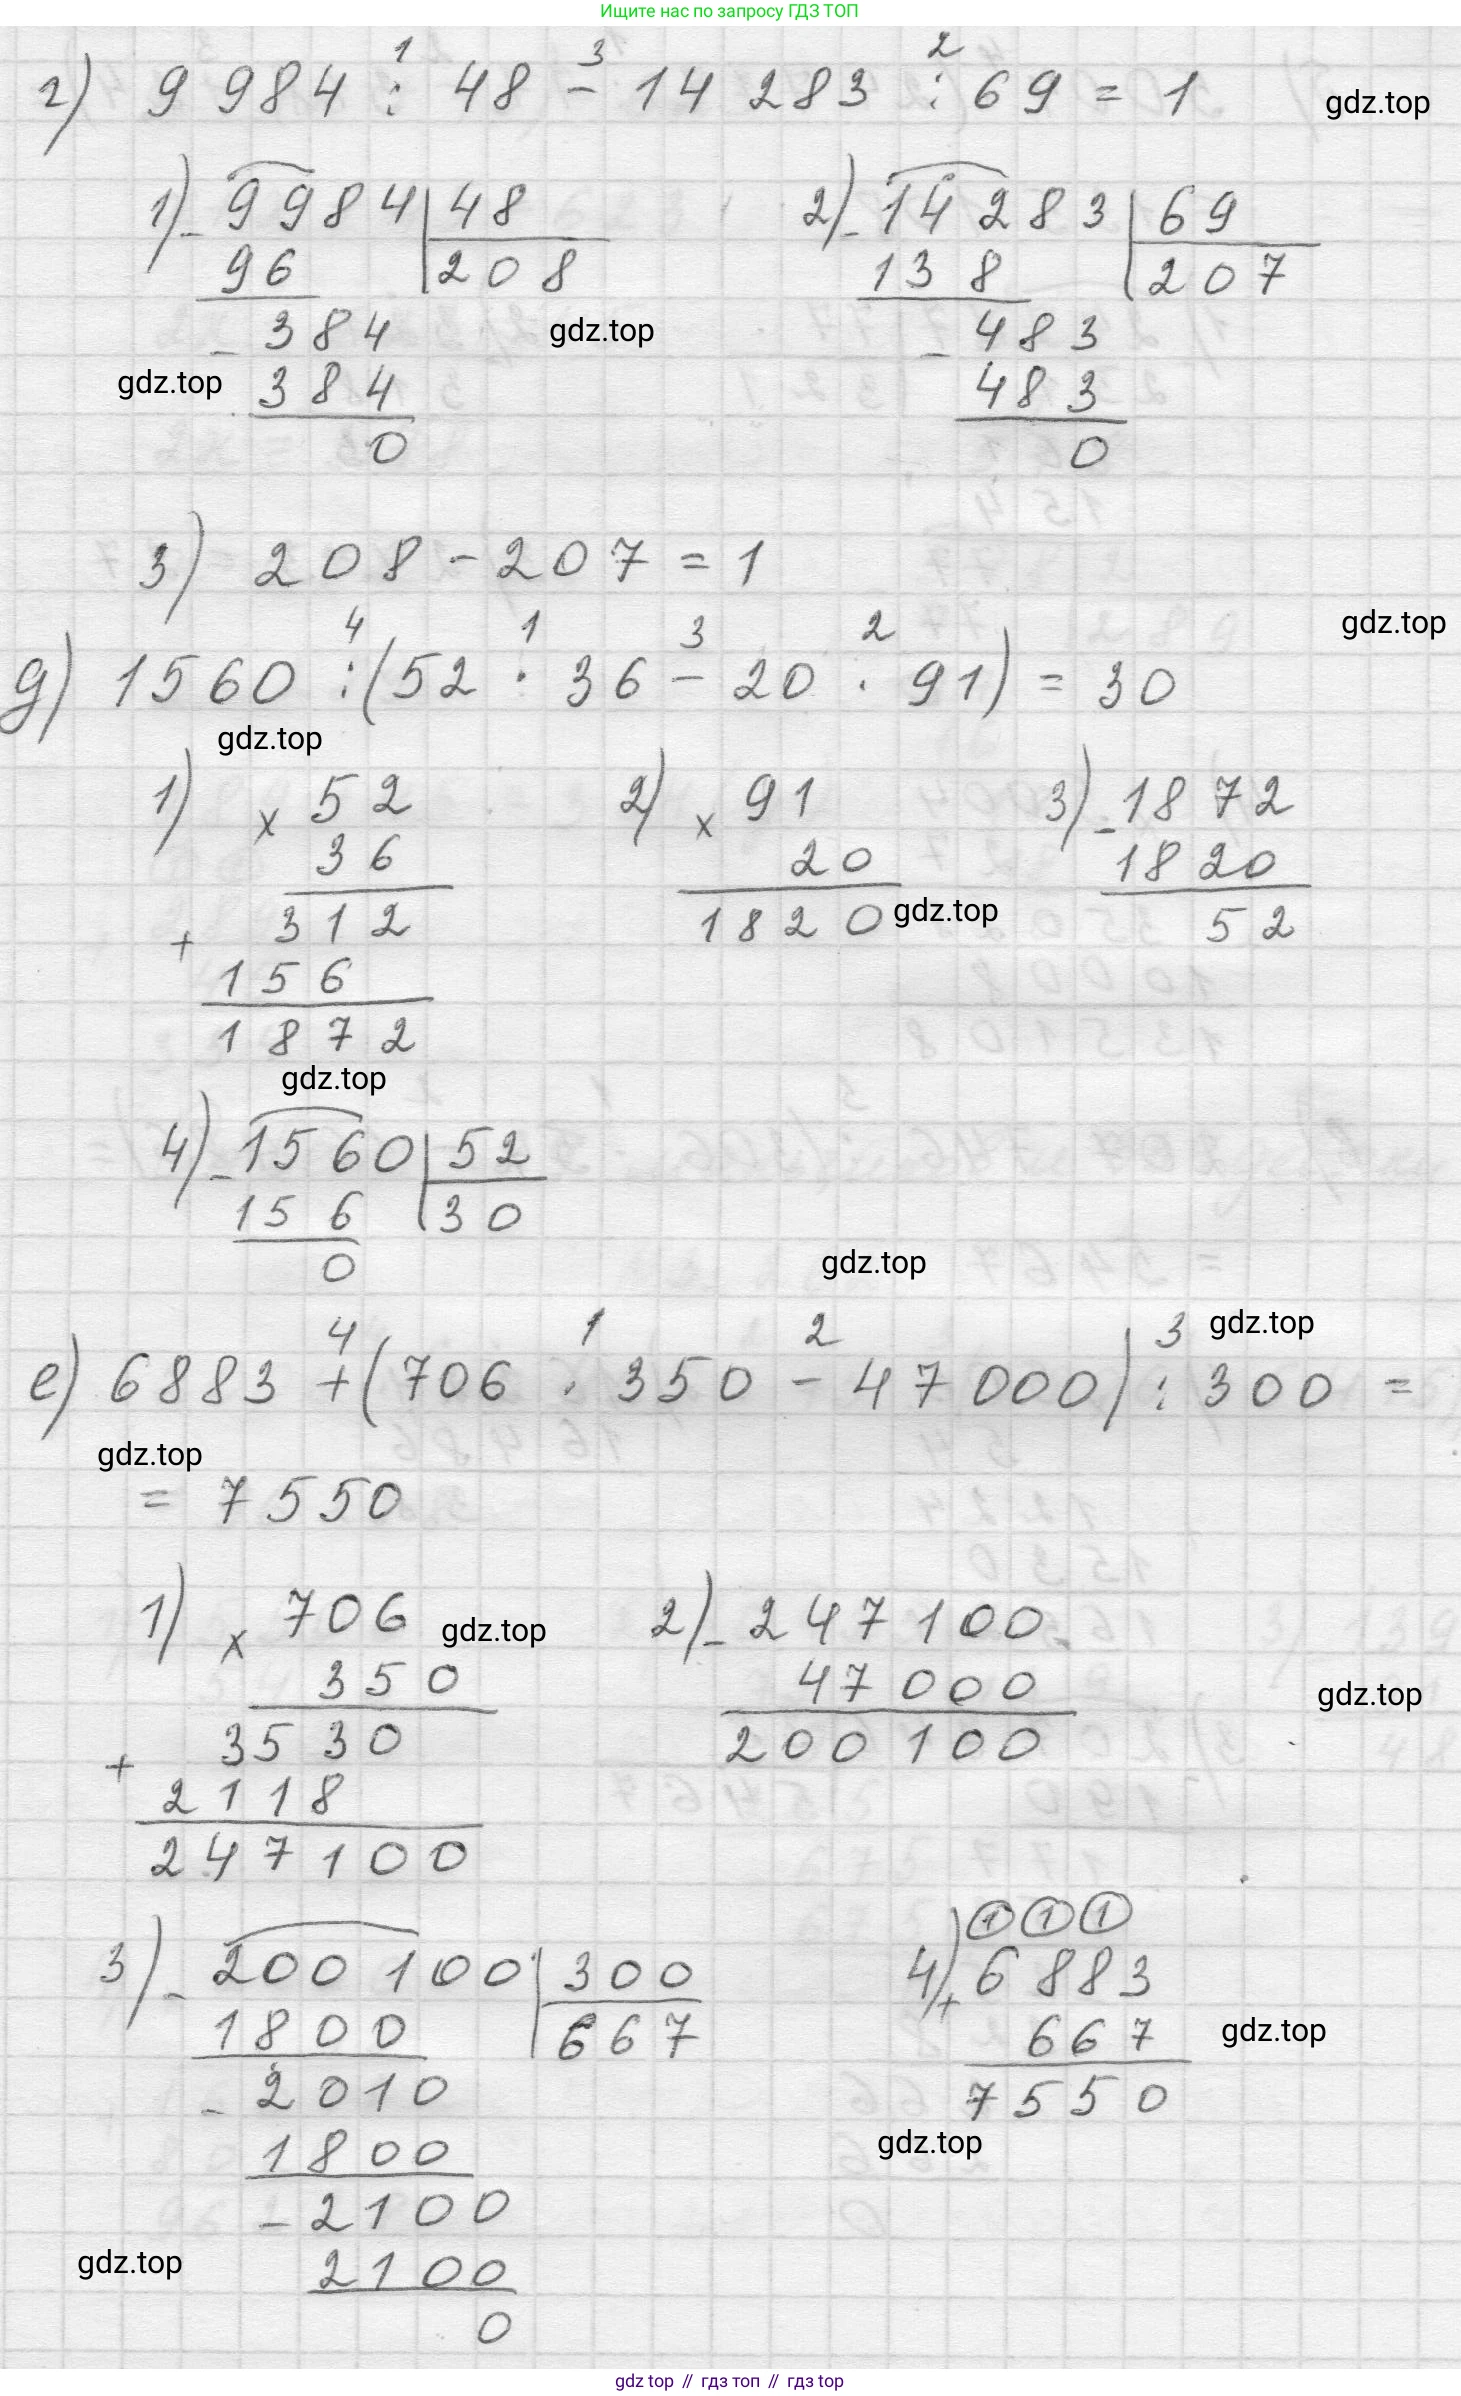 Ищите нас по запросу ГДЗ ТОП
г) 9 984 : 48 − 14 283 : 69 = 1
1 3 2
gdz.top
1) − 9984 | 48
96 | 208
− 384
384
0
2) − 14 283 | 69
138 | 207
− 483
483
0
gdz.top
gdz.top
3) 208 − 207 = 1
gdz.top
4 1 3 2
д) 1560 : (52 · 36 − 20 · 91) = 30
gdz.top
1) × 52
36
+ 312
156
1872
2) × 91
20
1820
gdz.top
3) − 1872
1820
52
gdz.top
4) − 1560 | 52
156 | 30
0
gdz.top
gdz.top
4 1 2 3
е) 6883 + (706 · 350 − 47 000) : 300 =
gdz.top
= 7550
1) × 706
350
+ 3530
2118
247100
gdz.top
2) − 247 100
47 000
200 100
gdz.top
3) − 200 100 | 300
1800 | 667
− 2010
1800
− 2100
2100
0
1 1 1
4) + 6 883
667
7550
gdz.top
gdz.top
gdz.top
gdz top // гдз топ // гдз top